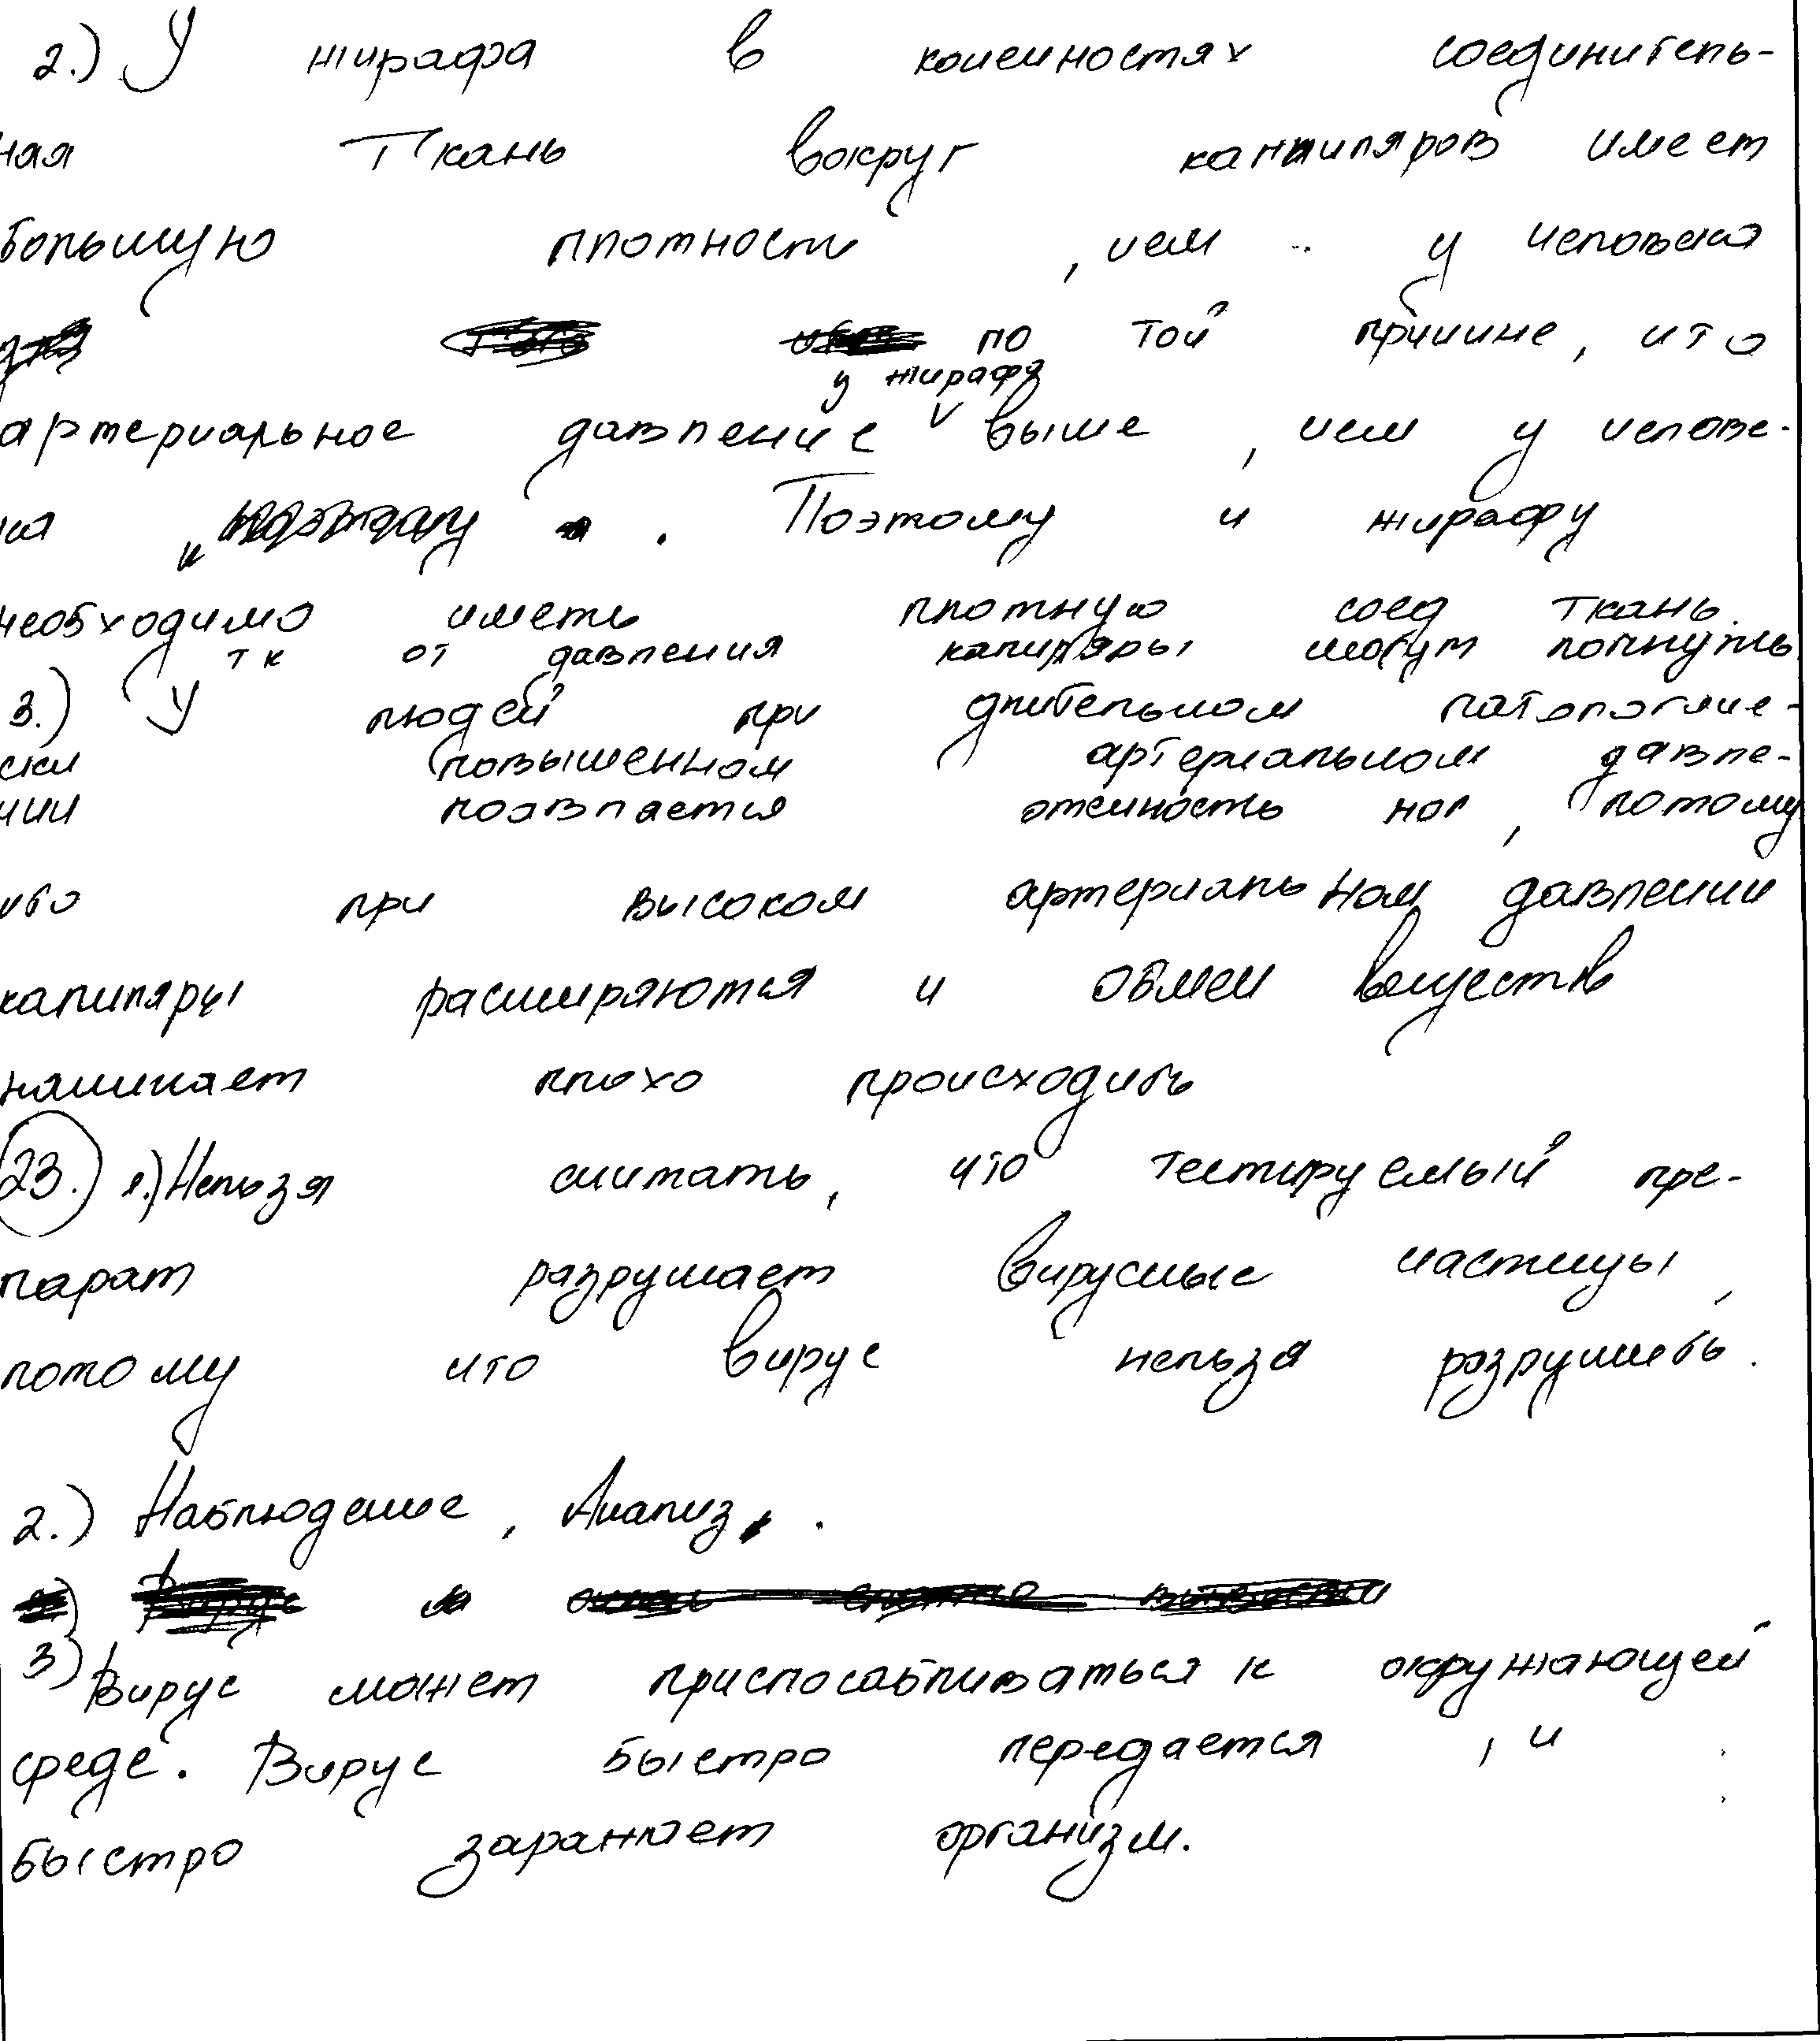 2.) У жирафа в конечностях соединитель-
ная ткань вокруг капиляров имеет
большую плотность, чем у человека
по той причине, что
у жирафа
артериальное давление выше, чем у челове-
ка . Поэтому и жирафу
необходимо иметь плотную соед ткань.
тк от давления капиляры могут лопнуть
3.) У людей при длительном патологиче-
ски повышенном артериальном давле-
нии появляется отечность ног, потому
что при высоком артериальном давлении
капиляры расширяются и обмен веществ
начинает плохо происходить
23.) 1.) Нельзя считать, что тестируемый пре-
парат разрушает вирусные частицы,
потому что вирус нельзя разрушить.
2.) Наблюдение, Анализ.
3) Вирус может приспосабливаться к окружающей
среде. Вирус быстро передается, и
быстро заражает организм.